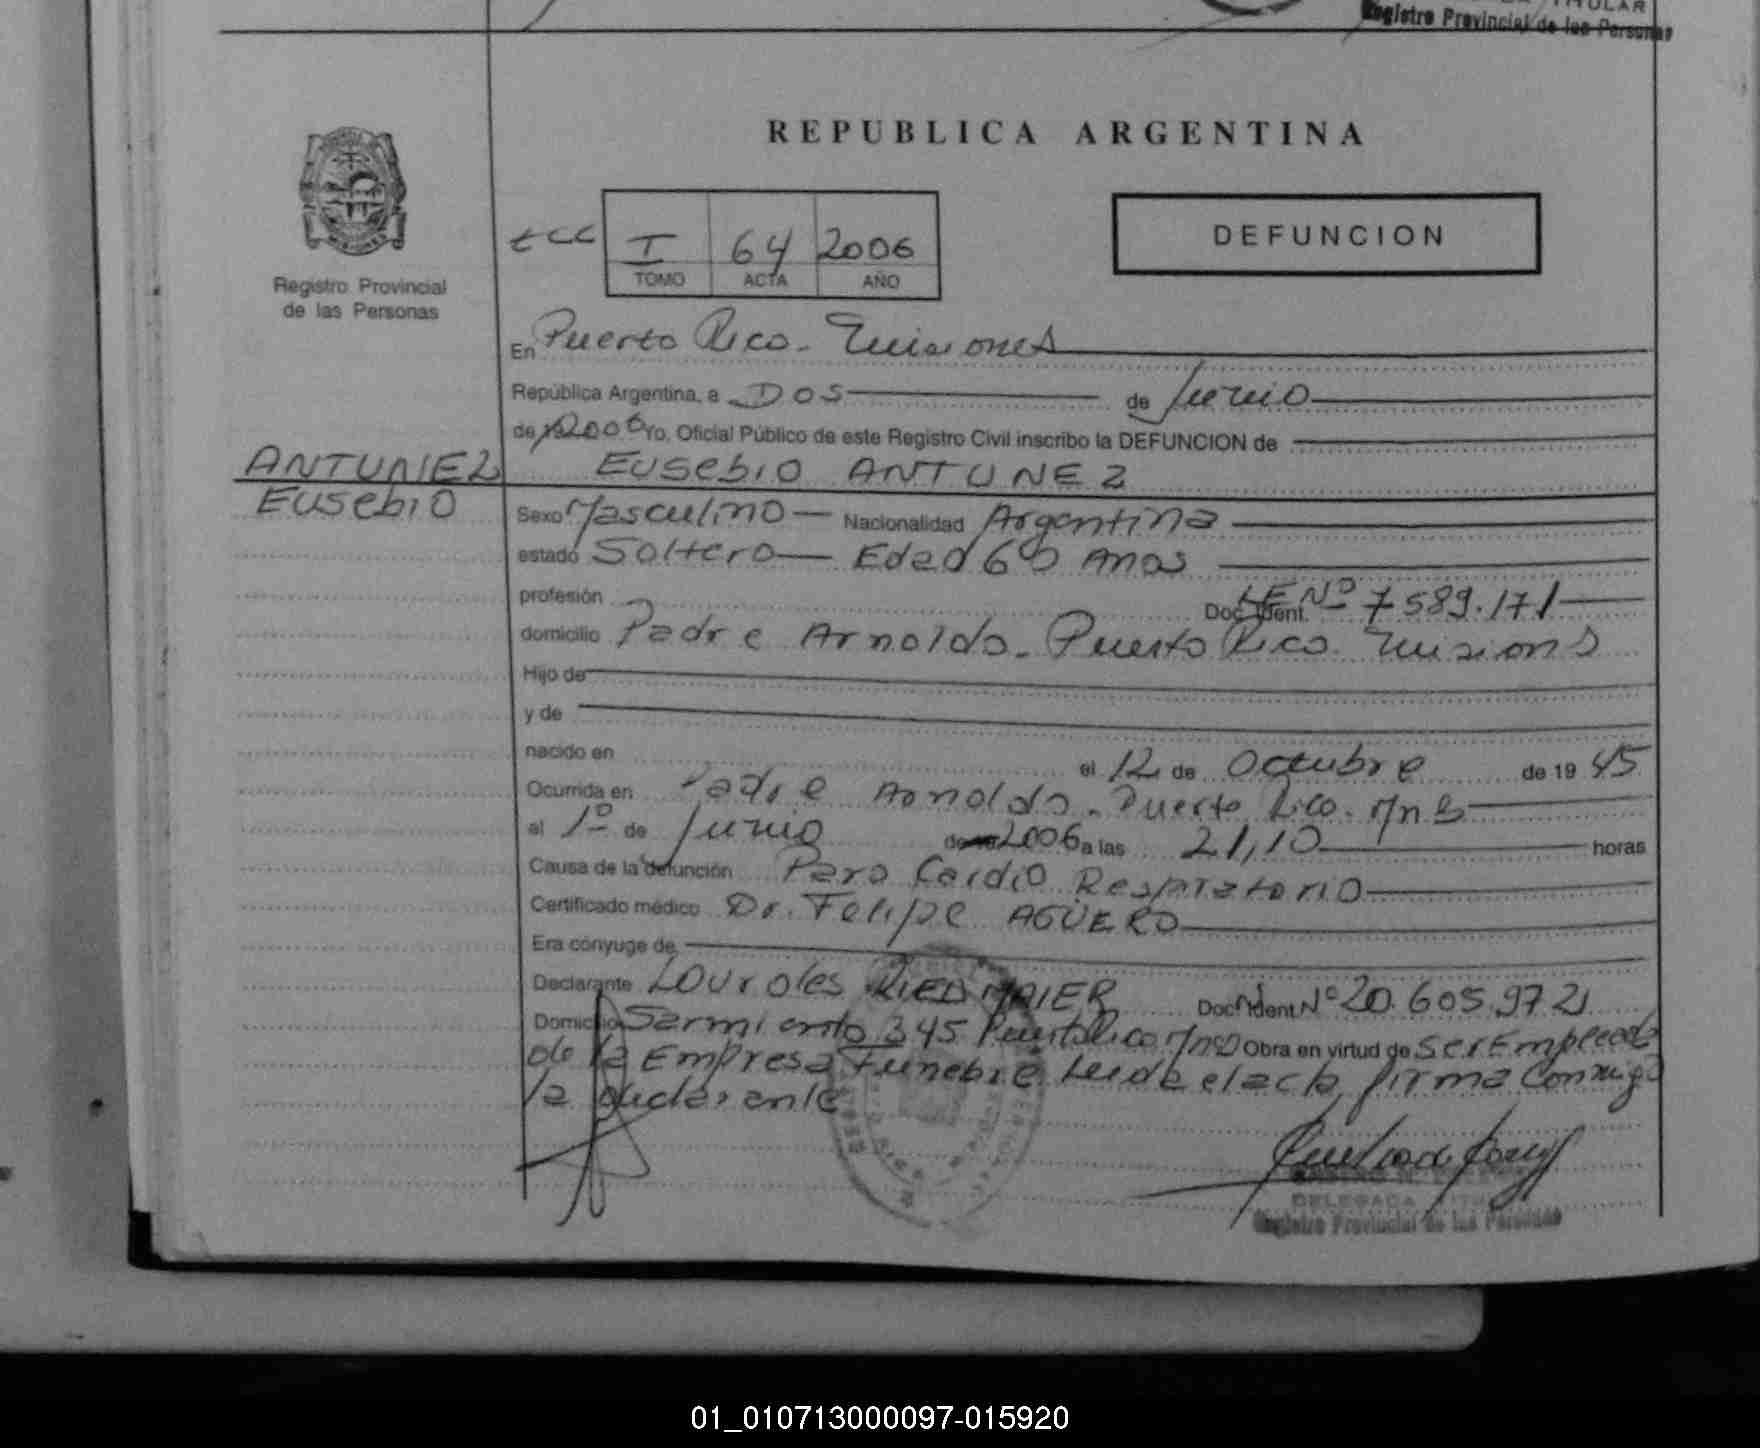 TITULAR
Registro Provincial de las Personas
REPUBLICA ARGENTINA
I 64 2006
TOMO ACTA AÑO
DEFUNCION
Registro Provincial
de las Personas
En Puerto Rico - Misiones
República Argentina, a Dos de Junio
de 2006 Yo, Oficial Público de este Registro Civil inscribo la DEFUNCION de
ANTUNEZ
Eusebio
Eusebio ANTUNEZ
Sexo Masculino Nacionalidad Argentina
estado Soltero Edad 60 Anos
profesión Doc. Ident. LE Nº 7589.171
domicilio Padre Arnoldo - Puerto Rico Misions
Hijo de
y de
nacido en el 12 de Octubre de 19 45
Ocurrida en Padre Arnoldo - Puerto Rico. Mns
el 1º de Junio de 2006 a las 21,10 horas
Causa de la defunción Paro Cardio Respiratorio
Certificado médico Dr. Felipe AGÜERO
Era cónyuge de
Declarante Lourdes RIEDMAIER Doc. Ident. Nº 20.605.972
Domicilio Sarmiento 345 Puerto Rico Mns Obra en virtud de ser Empleada
de la Empresa Funebre Leida el acta firma Conmigo
la declarante
DELEGADA TITULAR
Registro Provincial de las Personas
01_010713000097-015920